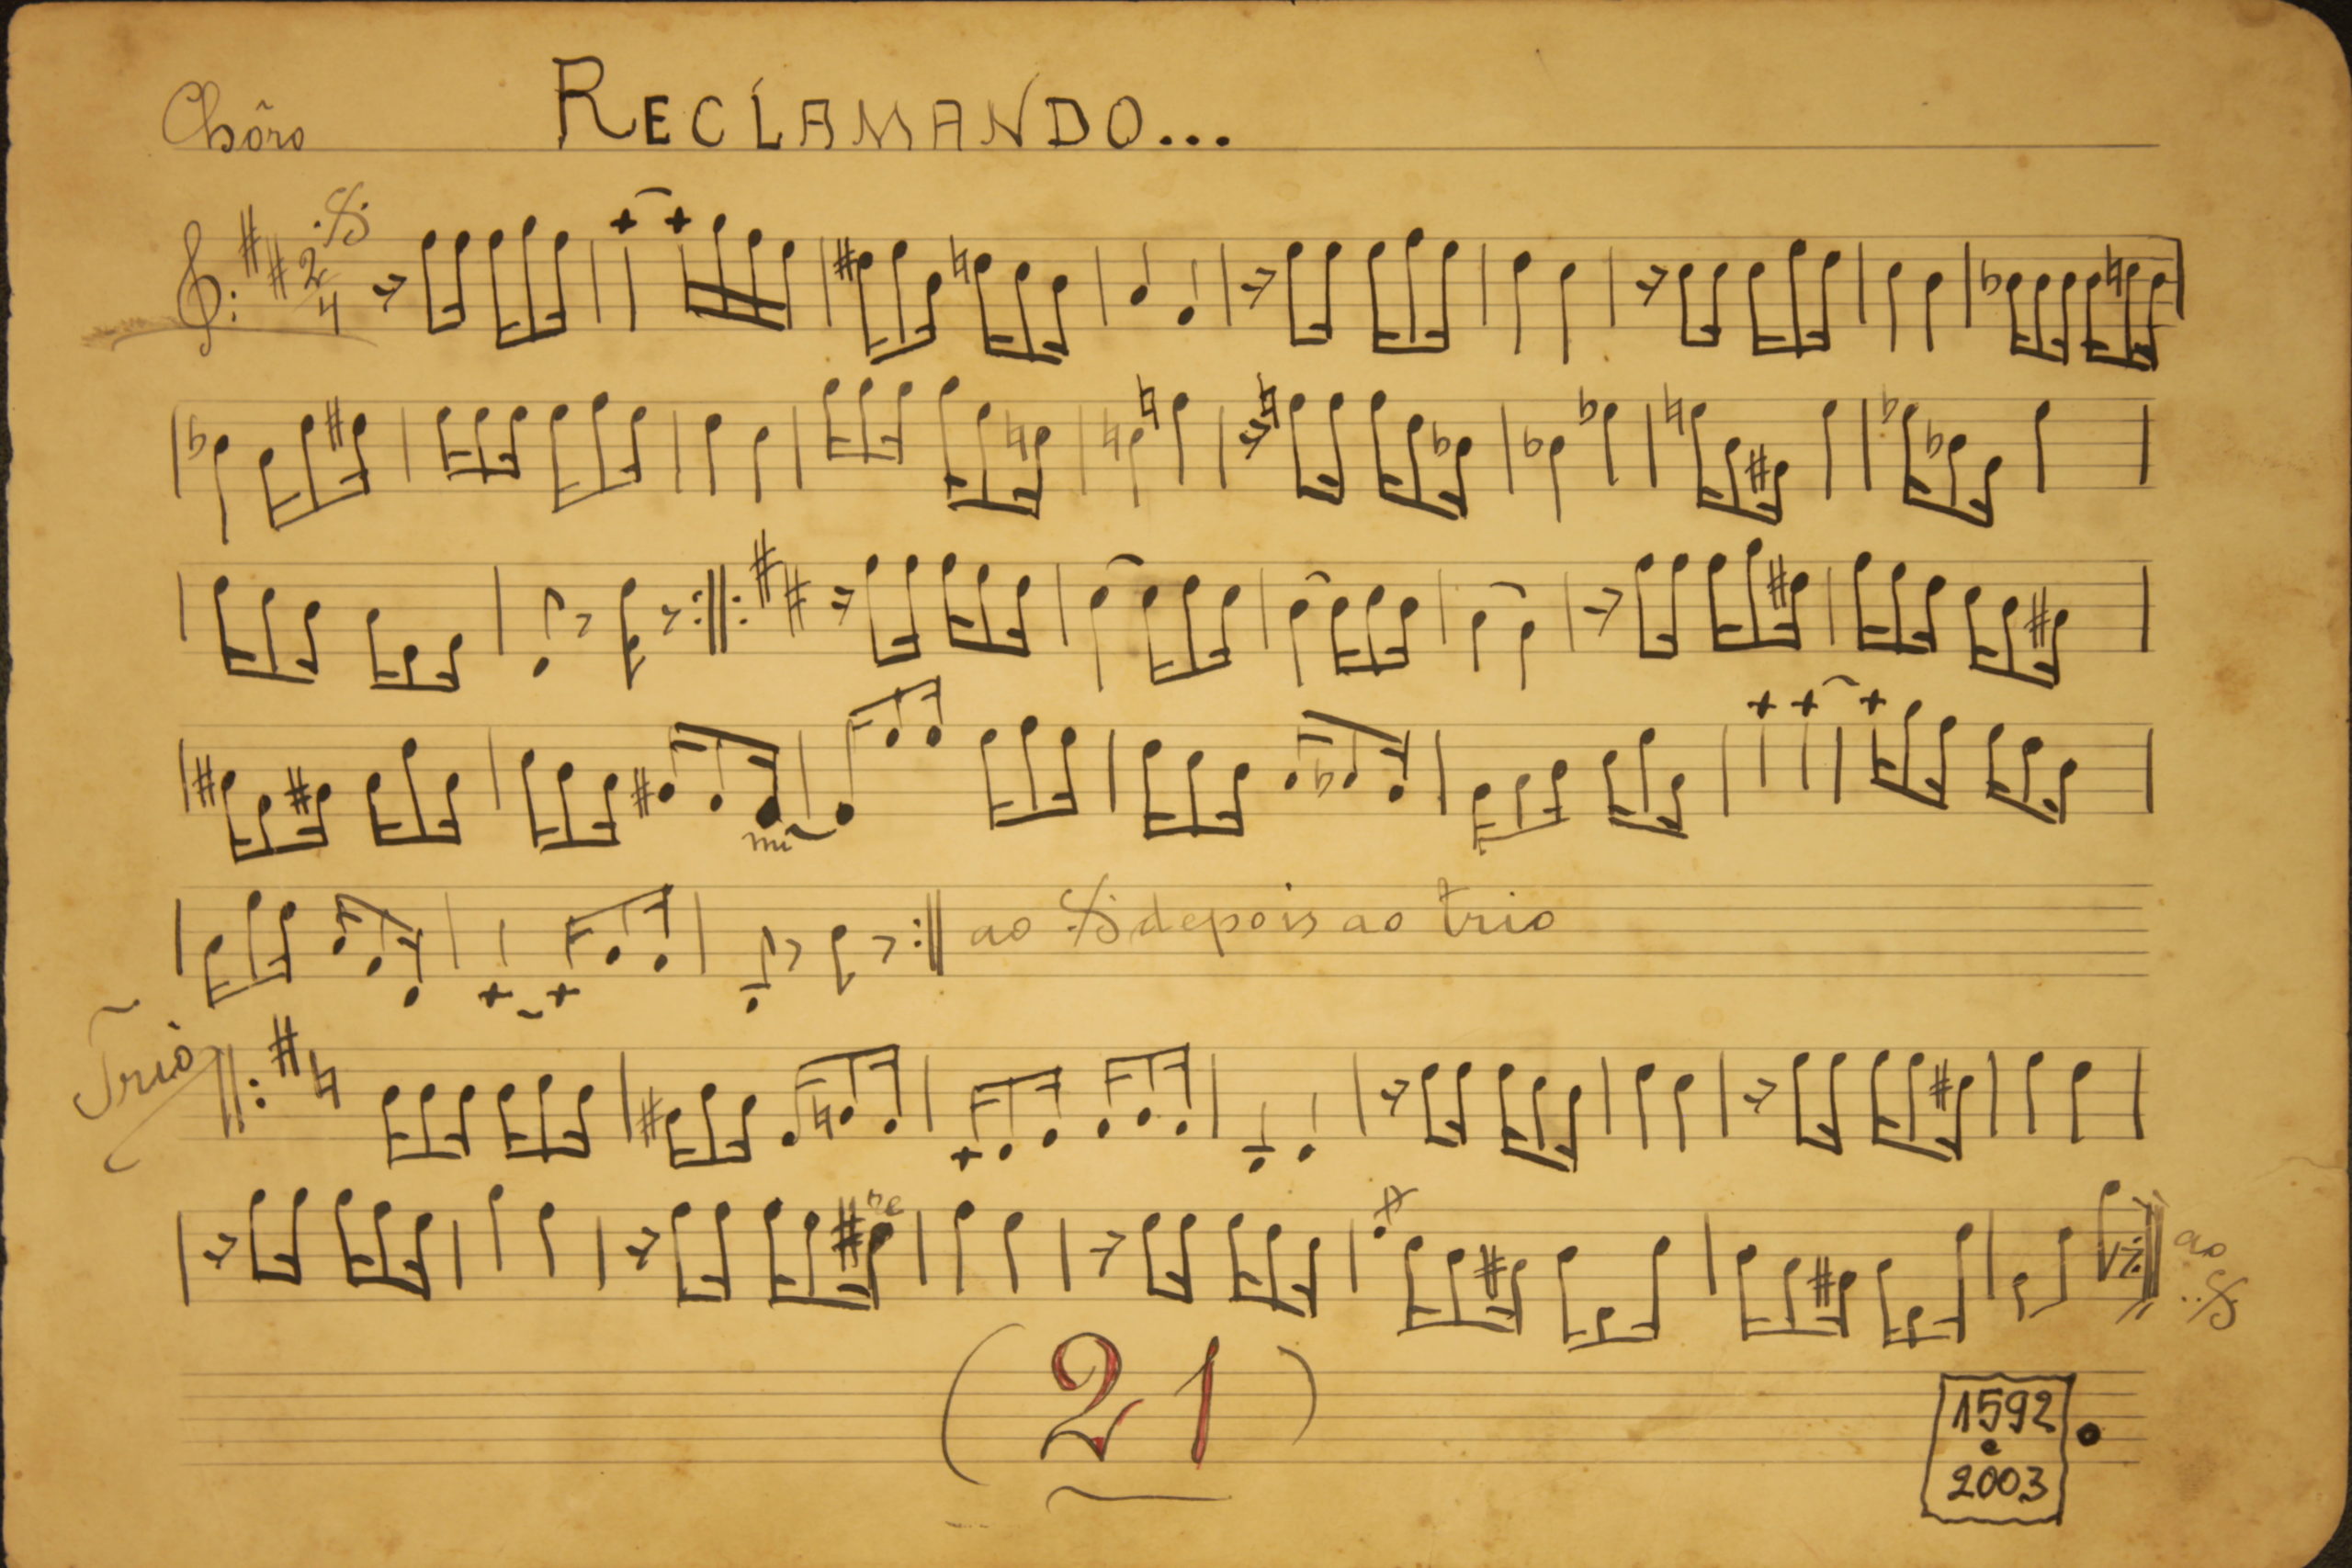 Chôro RECLAMANDO...
2/4
mi
ao depois ao trio
Trio
re
ao
(21)
1592
e
2003